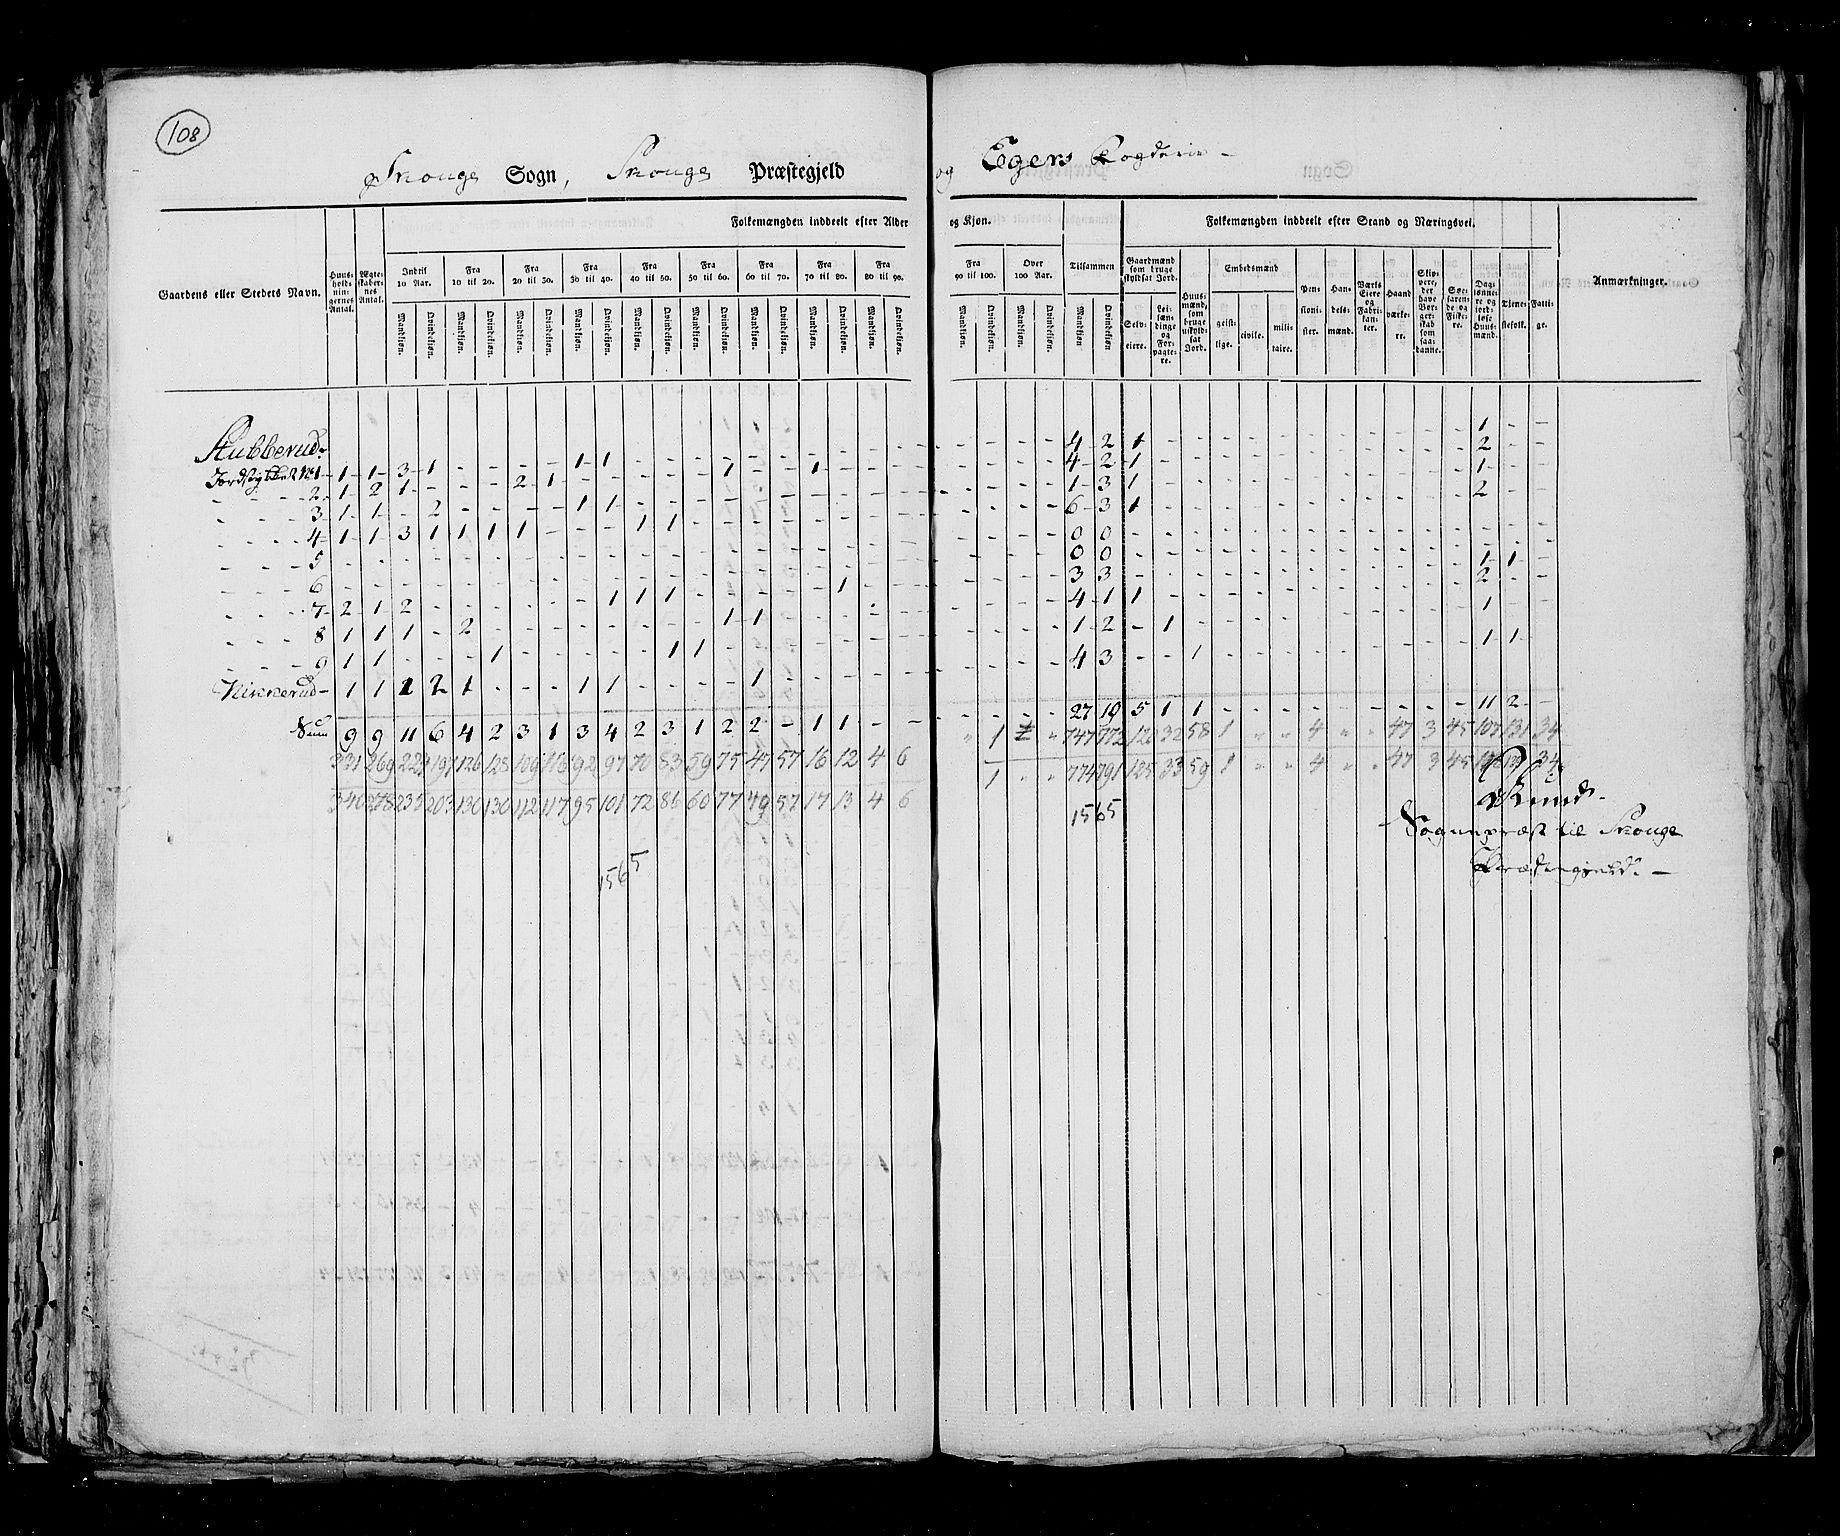 108
Skouge Sogn, Skouge Præstegjeld og Egers Fogderie
Gaardens eller Stedets Navn. Huusholdningernes Antal. Ægteskabernes Antal. Folkemængden inddeelt efter Alder og Kjøn. Tilsammen Folkemængden inddeelt efter Stand og Næringsvei. Anmærkninger.
Indtil 10 Aar. Fra 10 til 20. Fra 20 til 30. Fra 30 til 40. Fra 40 til 50. Fra 50 til 60. Fra 60 til 70. Fra 70 til 80. Fra 80 til 90. Fra 90 til 100. Over 100 Aar.
Gaardmænd som bruge skyldsat Jord. Huusmænd, som bruge uskyldsat Jord. Embedsmænd Pensionister. Handelsmænd. Værks Eiere og Fabrikanter. Haandværkere. Skippere, der have Borgerskab som saadanne. Søefarende og Fiskere. Daglønnere og jordløse Huusmænd. Tjenestefolk. Fattige.
Mandkiøn. Qvindekiøn. Mandkiøn. Qvindekiøn. Mandkiøn. Qvindekiøn. Mandkiøn. Qvindekiøn. Mandkiøn. Qvindekiøn. Mandkiøn. Qvindekiøn. Mandkiøn. Qvindekiøn. Mandkiøn. Qvindekiøn. Mandkiøn. Qvindekiøn. Mandkiøn. Qvindekiøn. Mandkiøn. Qvindekiøn. Mandkiøn Qvindekiøn Selveiere. Leilændinge og Forpagtere. geistlige. civile. militaire.
Stubberud
1 1 1 3 1 - - - - 1 1 - - - 1 - - 1 - - 4 2 1 - 1 - -
2 1 2 1 - - - 2 1 - - 4 2 1 - 2 - -
3 1 1 - 2 - - - - 1 1 - 1 3 1 - 1 - -
4 1 1 3 1 1 1 1 - - - 1 1 - 6 3 1 - 2 - -
5 - - - 0 0 - - -
6 - - - 0 0 - - -
7 2 1 2 - - - - - - 1 1 1 - - - - - 1 - 3 3 - - 1 1 -
8 1 1 1 - 2 - - - - - - - - 1 1 - - 4 1 1 - 2 - -
9 1 1 - - - 1 - - - - - 1 1 - - 1 2 - 1 - 1 -
1 1 1 2 1 - - - 1 1 - - - - 1 - - 4 3 - - 1 - 1 1 -
Sum 9 9 11 6 4 2 3 1 3 4 2 3 1 2 2 - 1 1 - - 27 19 5 1 1 - 11 2 -
331 269 224 197 126 128 109 116 92 97 70 83 59 75 47 57 16 12 4 6 1 747 772 120 32 58 1 4 47 3 45 107 131 34
340 278 235 203 130 130 112 117 95 101 72 86 60 77 49 57 17 13 4 6 1 774 791 125 33 59 1 4 47 3 45 34
1565
1565
Sognepræst til Skouge
Præstegjeld. -